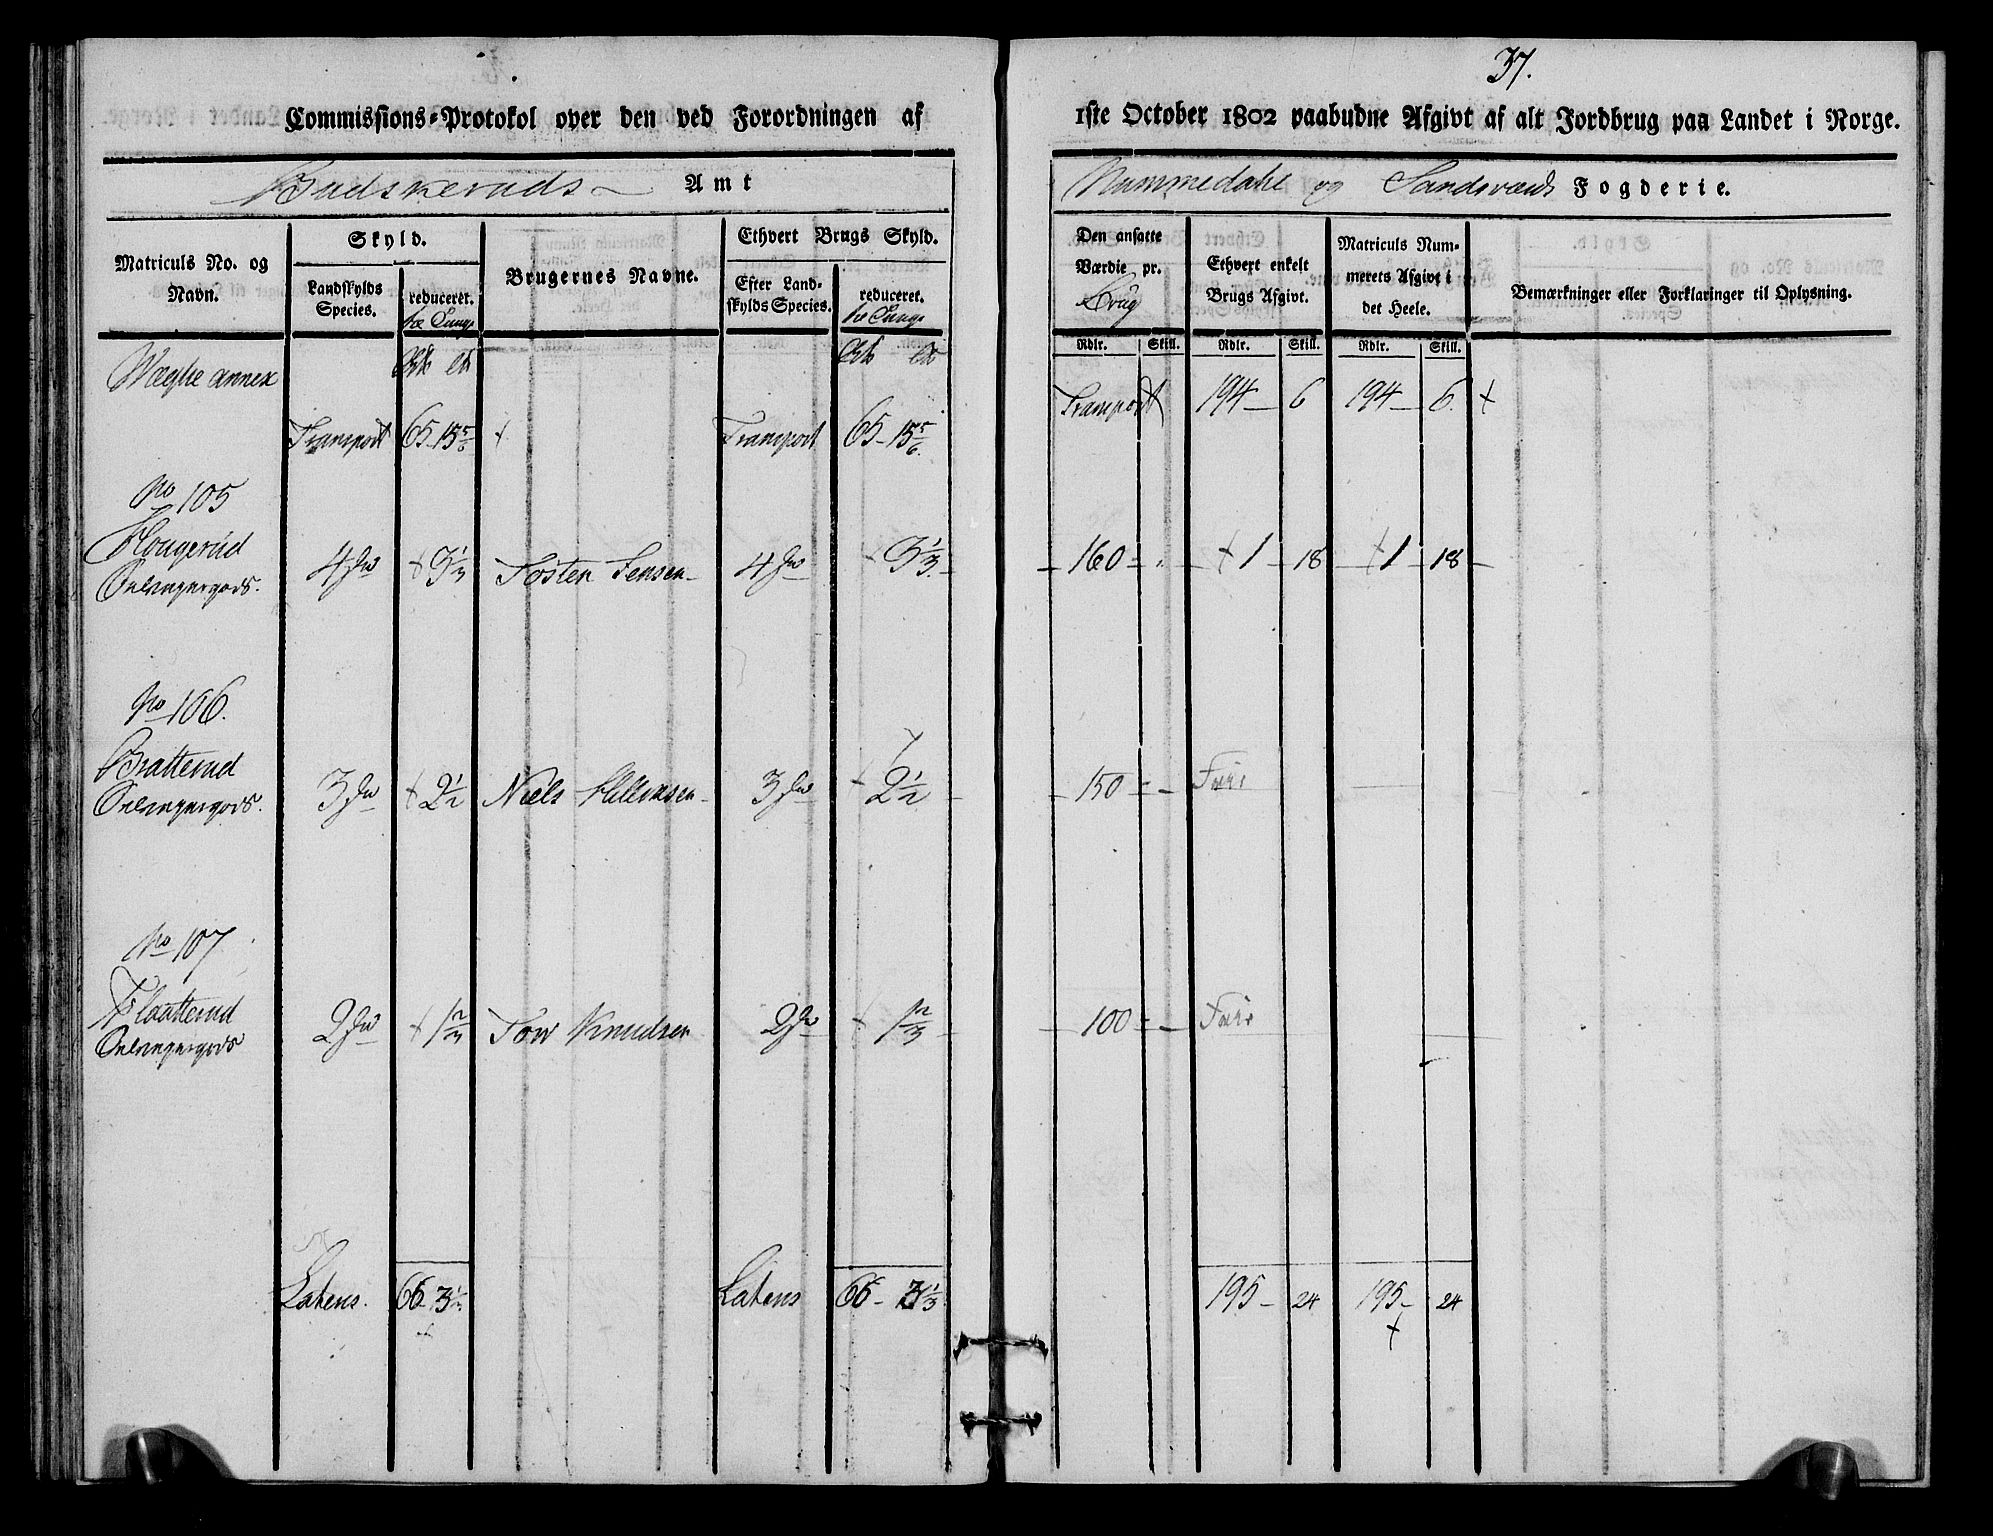 37.
Commissions-Protokol over den ved Forordningen af
1ste October 1802 paabudne Afgivt af alt Jordbrug paa Landet i Norge.
Budskeruds Amt
Nummedahl og Sandsværds Fogderie.
Matriculs No. og Navn.
Skyld.
Landskylds Species.
reduceret.
Brugernes Navne.
Ethvert Brugs Skyld.
Efter Landskylds Species.
reduceret.
Den ansatte Værdie pr. Brug
Ethvert enkelt Brugs Afgivt.
Matriculs Nummerets Afgivt i det Heele.
Bemærkninger eller Forklaringer til Oplysning.
Rdlr. Skill. Rdlr. Skill. Rdlr. Skill.
Wæglie annex
Transport 65-15 5/6 Transport 65-15 5/6.
Transport 194 - 6 194 - 6.
No 105
Hougerud 4 3 1/3 Tosten Jensen 4 3 1/3. 160 1 18 1 18
No 106.
Bratterud 3 2 1/2 Niels Halvorsen 3 2 1/2 150
No 107
Flaatterud 2 1 2/3 Tow Knudsen 2 1 2/3 100
Latens. 66-3 1/3 Latens 66-3 1/3 195 - 24 195 - 24